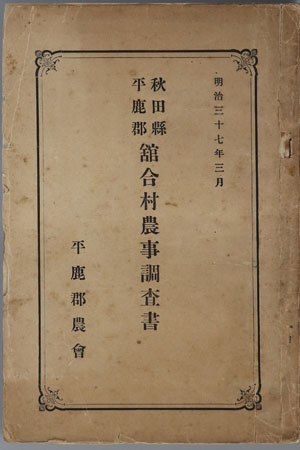 明治三十七年三月
秋田縣
平鹿郡
舘合村農事調査書
平鹿郡農會